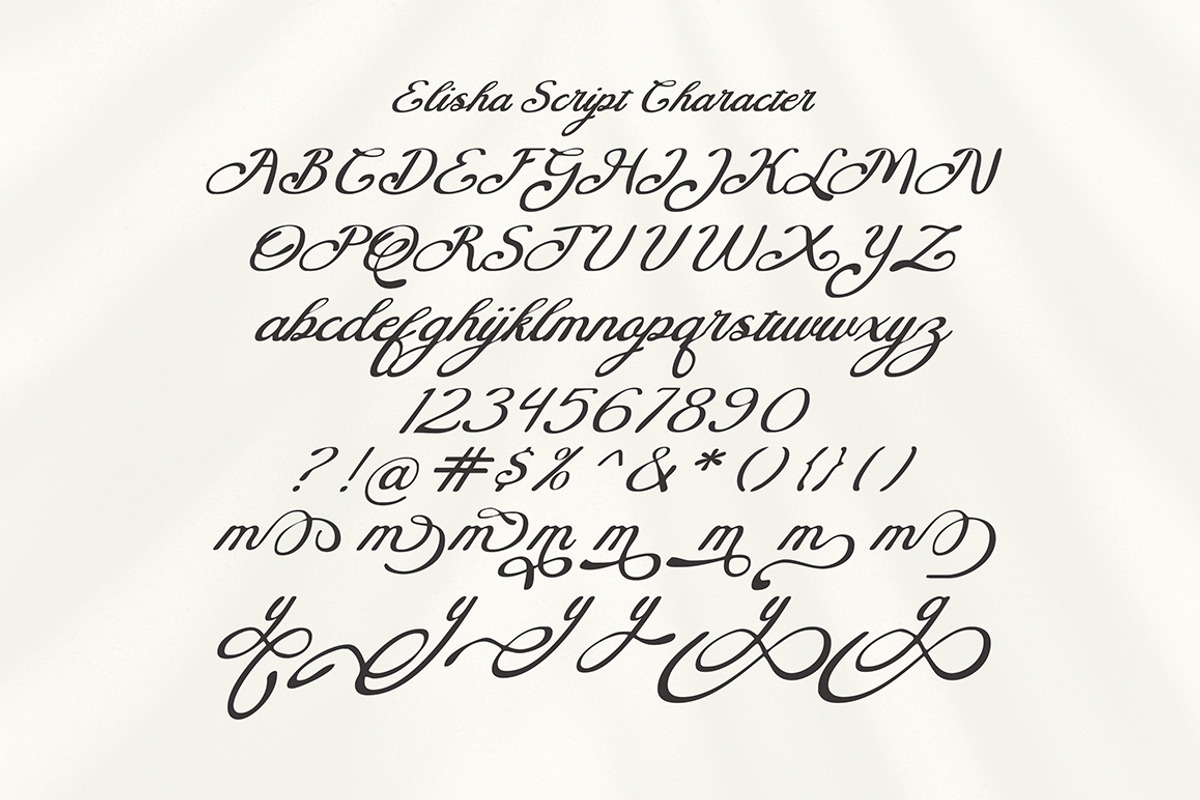 Elisha Script Character
ABCDEFGHIJKLMN
OPQRSTUVWXYZ
abcdefghijklmnopqrstuvwxyz
1234567890
?!@#$%^&*(){}()
m m m m m m m m
y y y y y g